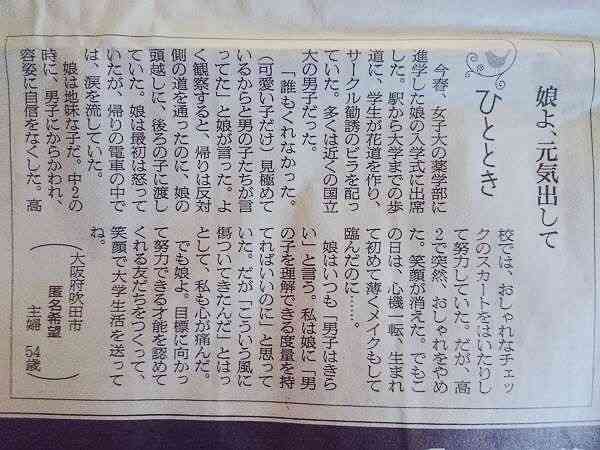 娘よ、元気出して
ひととき
今春、女子大の薬学部に
進学した娘の入学式に出席
した。駅から大学までの歩
道に、学生が花道を作り、
サークル勧誘のビラを配っ
ていた。多くは近くの国立
大の男子だった。
「誰もくれなかった。
(可愛い子だけ)見極めて
いるからと男の子たちが言
ってた―」と娘が言った。よ
く観察すると、帰りは反対
側の道を通ったのに、娘の
頭越しに、後ろの子に渡し
ていた。娘は最初は怒って
いたが、帰りの電車の中で
は、涙を流していた。
娘は地味な子だ。中2の
時に、男子にからかわれ、
容姿に自信をなくした。高
校では、おしゃれなチェッ
クのスカートをはいたりし
て努力していた。だが、高
2で突然、おしゃれをやめ
た。笑顔が消えた。でもこ
の日は、心機一転、生まれ
て初めて薄くメイクもして
臨んだのに……。
娘はいつも「男子はきら
い」と言う。私は娘に「男
の子を理解できる度量を持
てればいいのに」と思って
いた。だが「こういう風に
傷ついてきたんだ」とはっ
として、私も心が痛んだ。
でも娘よ。目標に向かっ
て努力できる才能を認めて
くれる友だちをつくって、
笑顔で大学生活を送って
ね。
(大阪府吹田市
匿名希望
主婦 54歳)